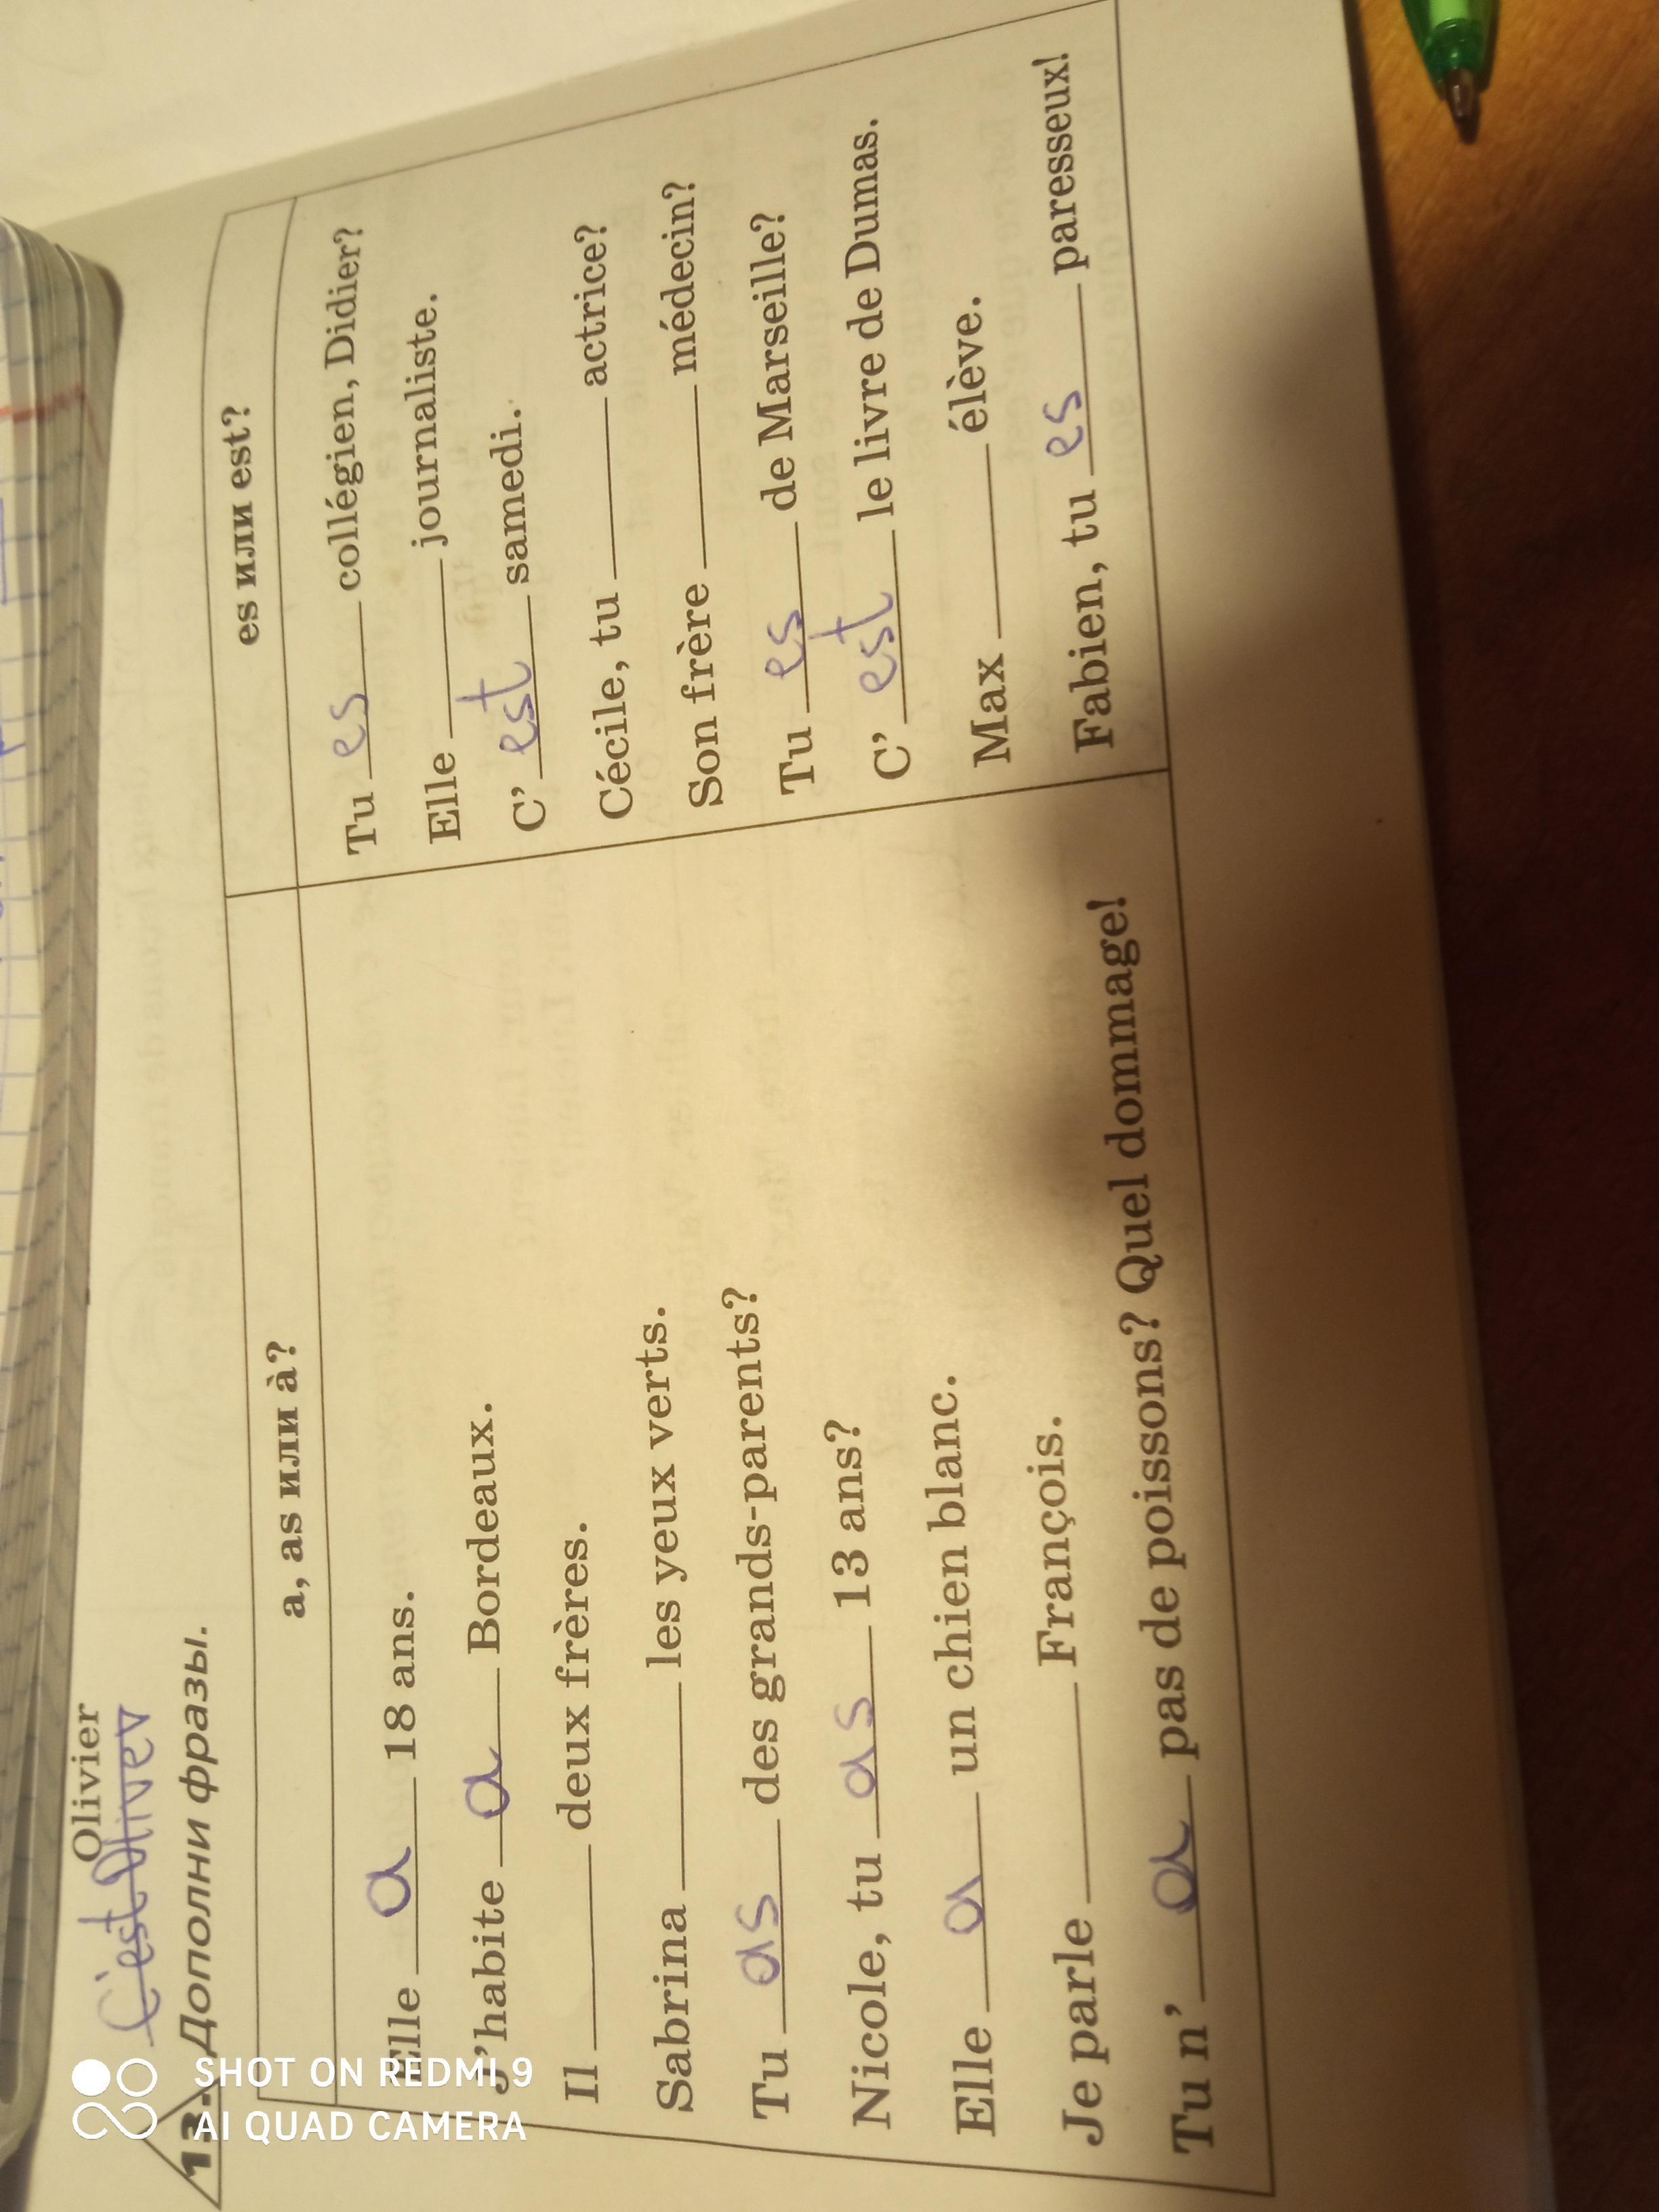 Olivier
C'est Oliver
13. Дополни фразы.
a, as или à?
Elle a 18 ans.
J'habite a Bordeaux.
Il ____ deux frères.
Sabrina ____ les yeux verts.
Tu as des grands-parents?
Nicole, tu as 13 ans?
Elle a un chien blanc.
Je parle ____ François.
Tu n' a pas de poissons? Quel dommage!
es или est?
Tu es collégien, Didier?
Elle ____ journaliste.
C' est samedi.
Cécile, tu ____ actrice?
Son frère ____ médecin?
Tu es de Marseille?
C' est le livre de Dumas.
Max ____ élève.
Fabien, tu es paresseux!
SHOT ON REDMI 9
AI QUAD CAMERA